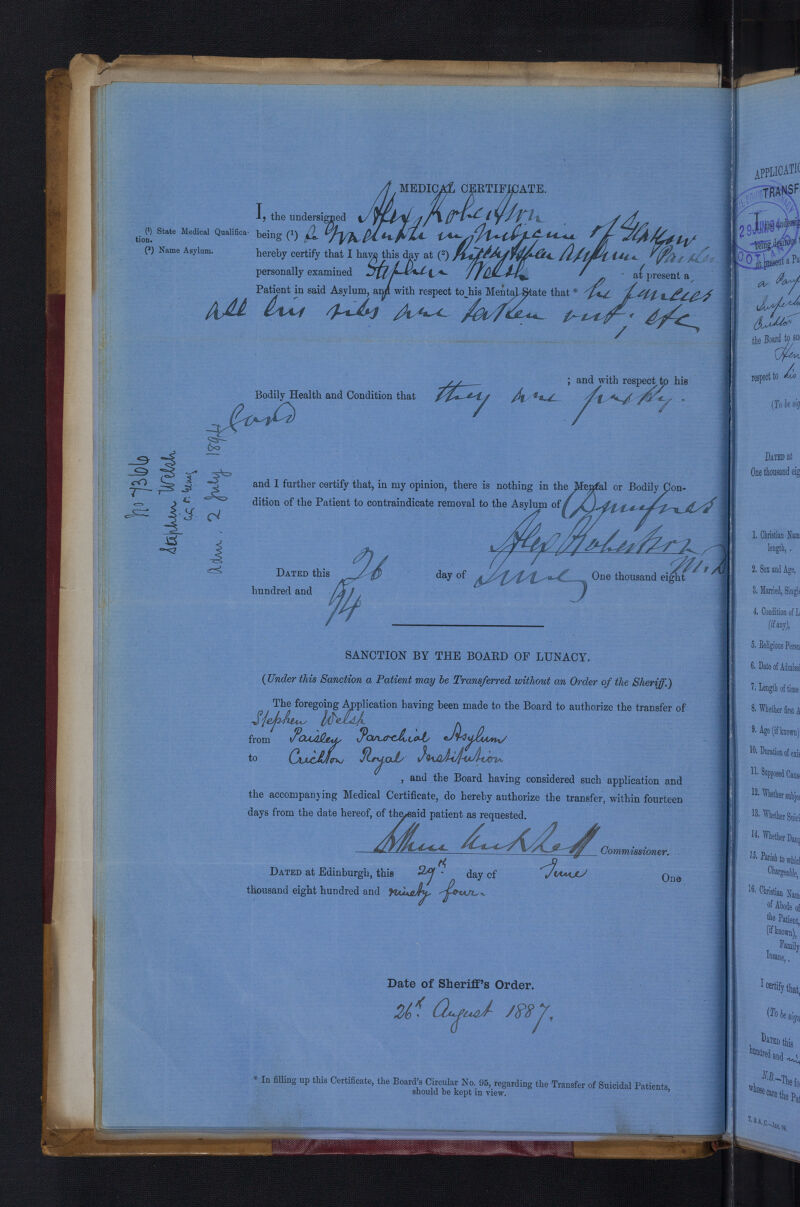 MEDICAL CERTIFICATE.
I, the undersigned Alex Robertson
(¹) State Medical Qualifica-
tion.
being (¹) a Graduate in Medicine of Glasgow
(²) Name Asylum.
hereby certify that I have this day at (²) Asylum Paisley
personally examined Stephen Welsh at present a
Patient in said Asylum, and with respect to his Mental State that * he fancies
all his ribs are taken out; etc
; and with respect to his
Bodily Health and Condition that they are
good
No 7366
Stephen Welsh
adm. 2 July 1894
and I further certify that, in my opinion, there is nothing in the Mental or Bodily Con-
dition of the Patient to contraindicate removal to the Asylum of Dumfries
Alex Robertson
M.D
DATED this 26 day of June One thousand eight
hundred and 94
SANCTION BY THE BOARD OF LUNACY.
(Under this Sanction a Patient may be Transferred without an Order of the Sheriff.)
The foregoing Application having been made to the Board to authorize the transfer of
Stephen Welsh
from Paisley Parochial Asylum
to Crichton Royal Institution
, and the Board having considered such application and
the accompanying Medical Certificate, do hereby authorize the transfer, within fourteen
days from the date hereof, of the said patient as requested.
Arthur Mitchell Commissioner.
DATED at Edinburgh, this 29th day of June One
thousand eight hundred and ninety four.
Date of Sheriff's Order.
26th August 1887.
* In filling up this Certificate, the Board's Circular No. 95, regarding the Transfer of Suicidal Patients,
should be kept in view.
APPLICATI
TRANSF
29 JUN 94
the Board to
respect to his
(To be sig
DATED at
One thousand eig
1. Christian Nam
length, .
2. Sex and Age,
3. Married, Singl
4. Condition of L
(if any),
5. Religious Persu
6. Date of Admiss
7. Length of time
8. Whether first A
9. Age (if known)
10. Duration of exis
11. Supposed Caus
12. Whether subjec
13. Whether Suici
14. Whether Dang
15. Parish to which
Chargeable,
16. Christian Nam
of Abode of
the Patient,
(if known),
Family
Insane, .
I certify that,
(To be sign
DATED this
hundred and
N.B.—The fo
whose care the Pat